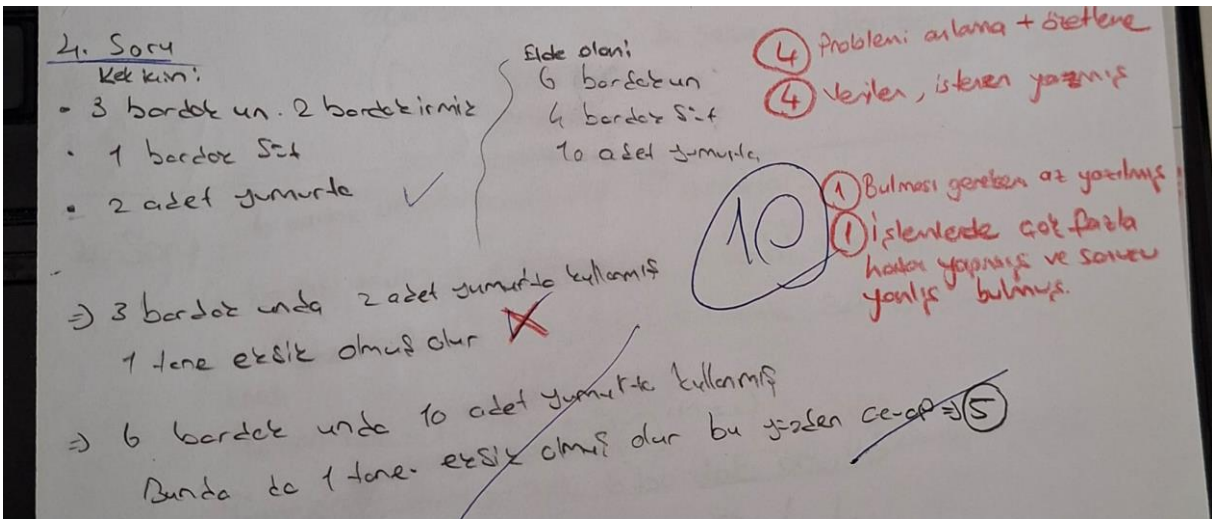 4. Soru
Kek için:
• 3 bardak un. 2 bardak irmik
• 1 bardak süt
• 2 adet yumurta
Elde olan:
6 bardak un
4 bardak süt
10 adet yumurta
4 Problemi anlama + özetleme
4 Verilen, istenen yazmış
10
1 Bulması gereken az yazılmış
1 İşlemlerde çok fazla
hata yapmış ve sonucu
yanlış bulmuş.
⇒ 3 bardak unda 2 adet yumurta kullanmış
1 tane eksik olmuş olur
⇒ 6 bardak unda 10 adet yumurta kullanmış
Bunda da 1 tane eksik olmuş olur bu yüzden cevap ⇒ 5